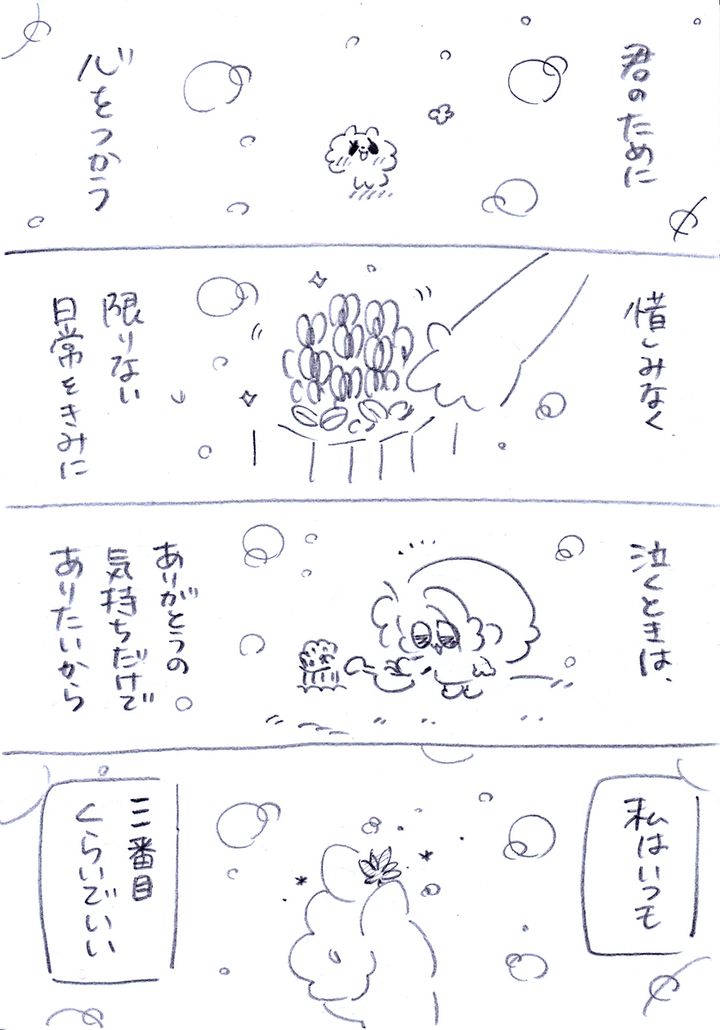 君のために
心をつかう
惜しみなく
限りない
日常をきみに
泣くときは、
ありがとうの
気持ちだけで
ありたいから
私はいつも
三番目
くらいでいい